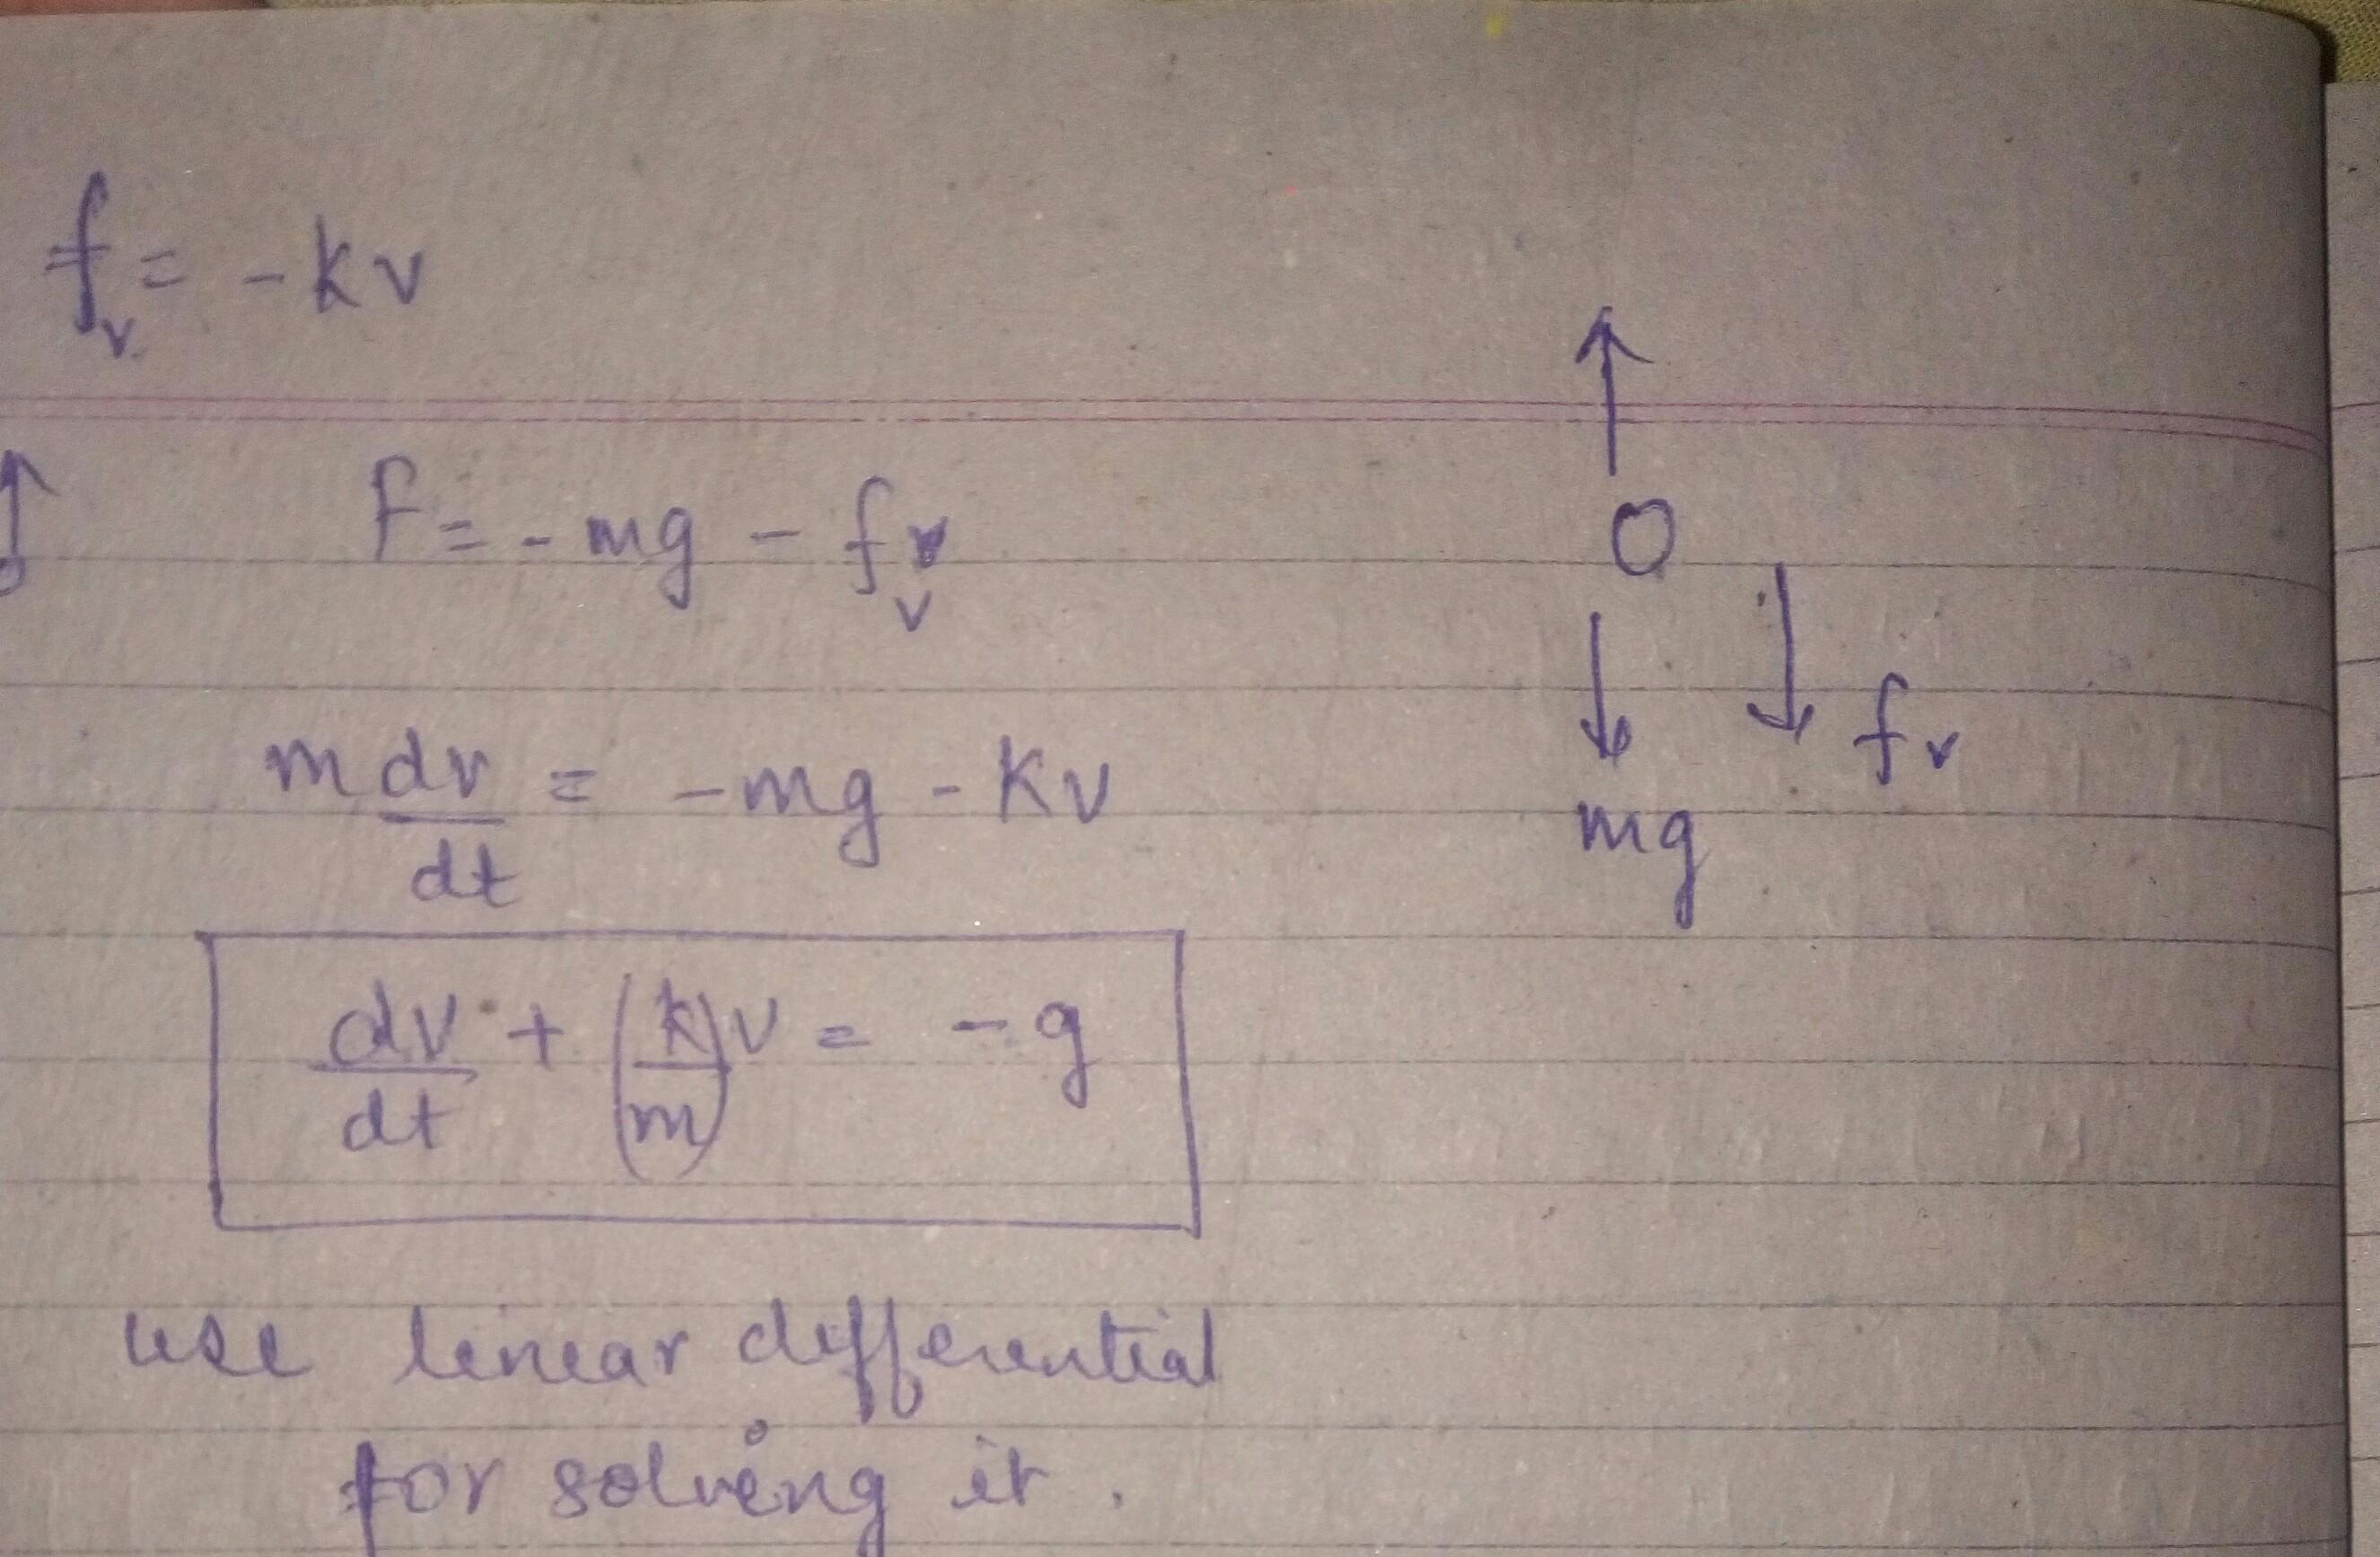 f_v = - kv
F = - mg - f_v
m dv/dt = - mg - Kv
f_v
mg
dv/dt + (k/m) v = - g
use linear differential
for solving it.